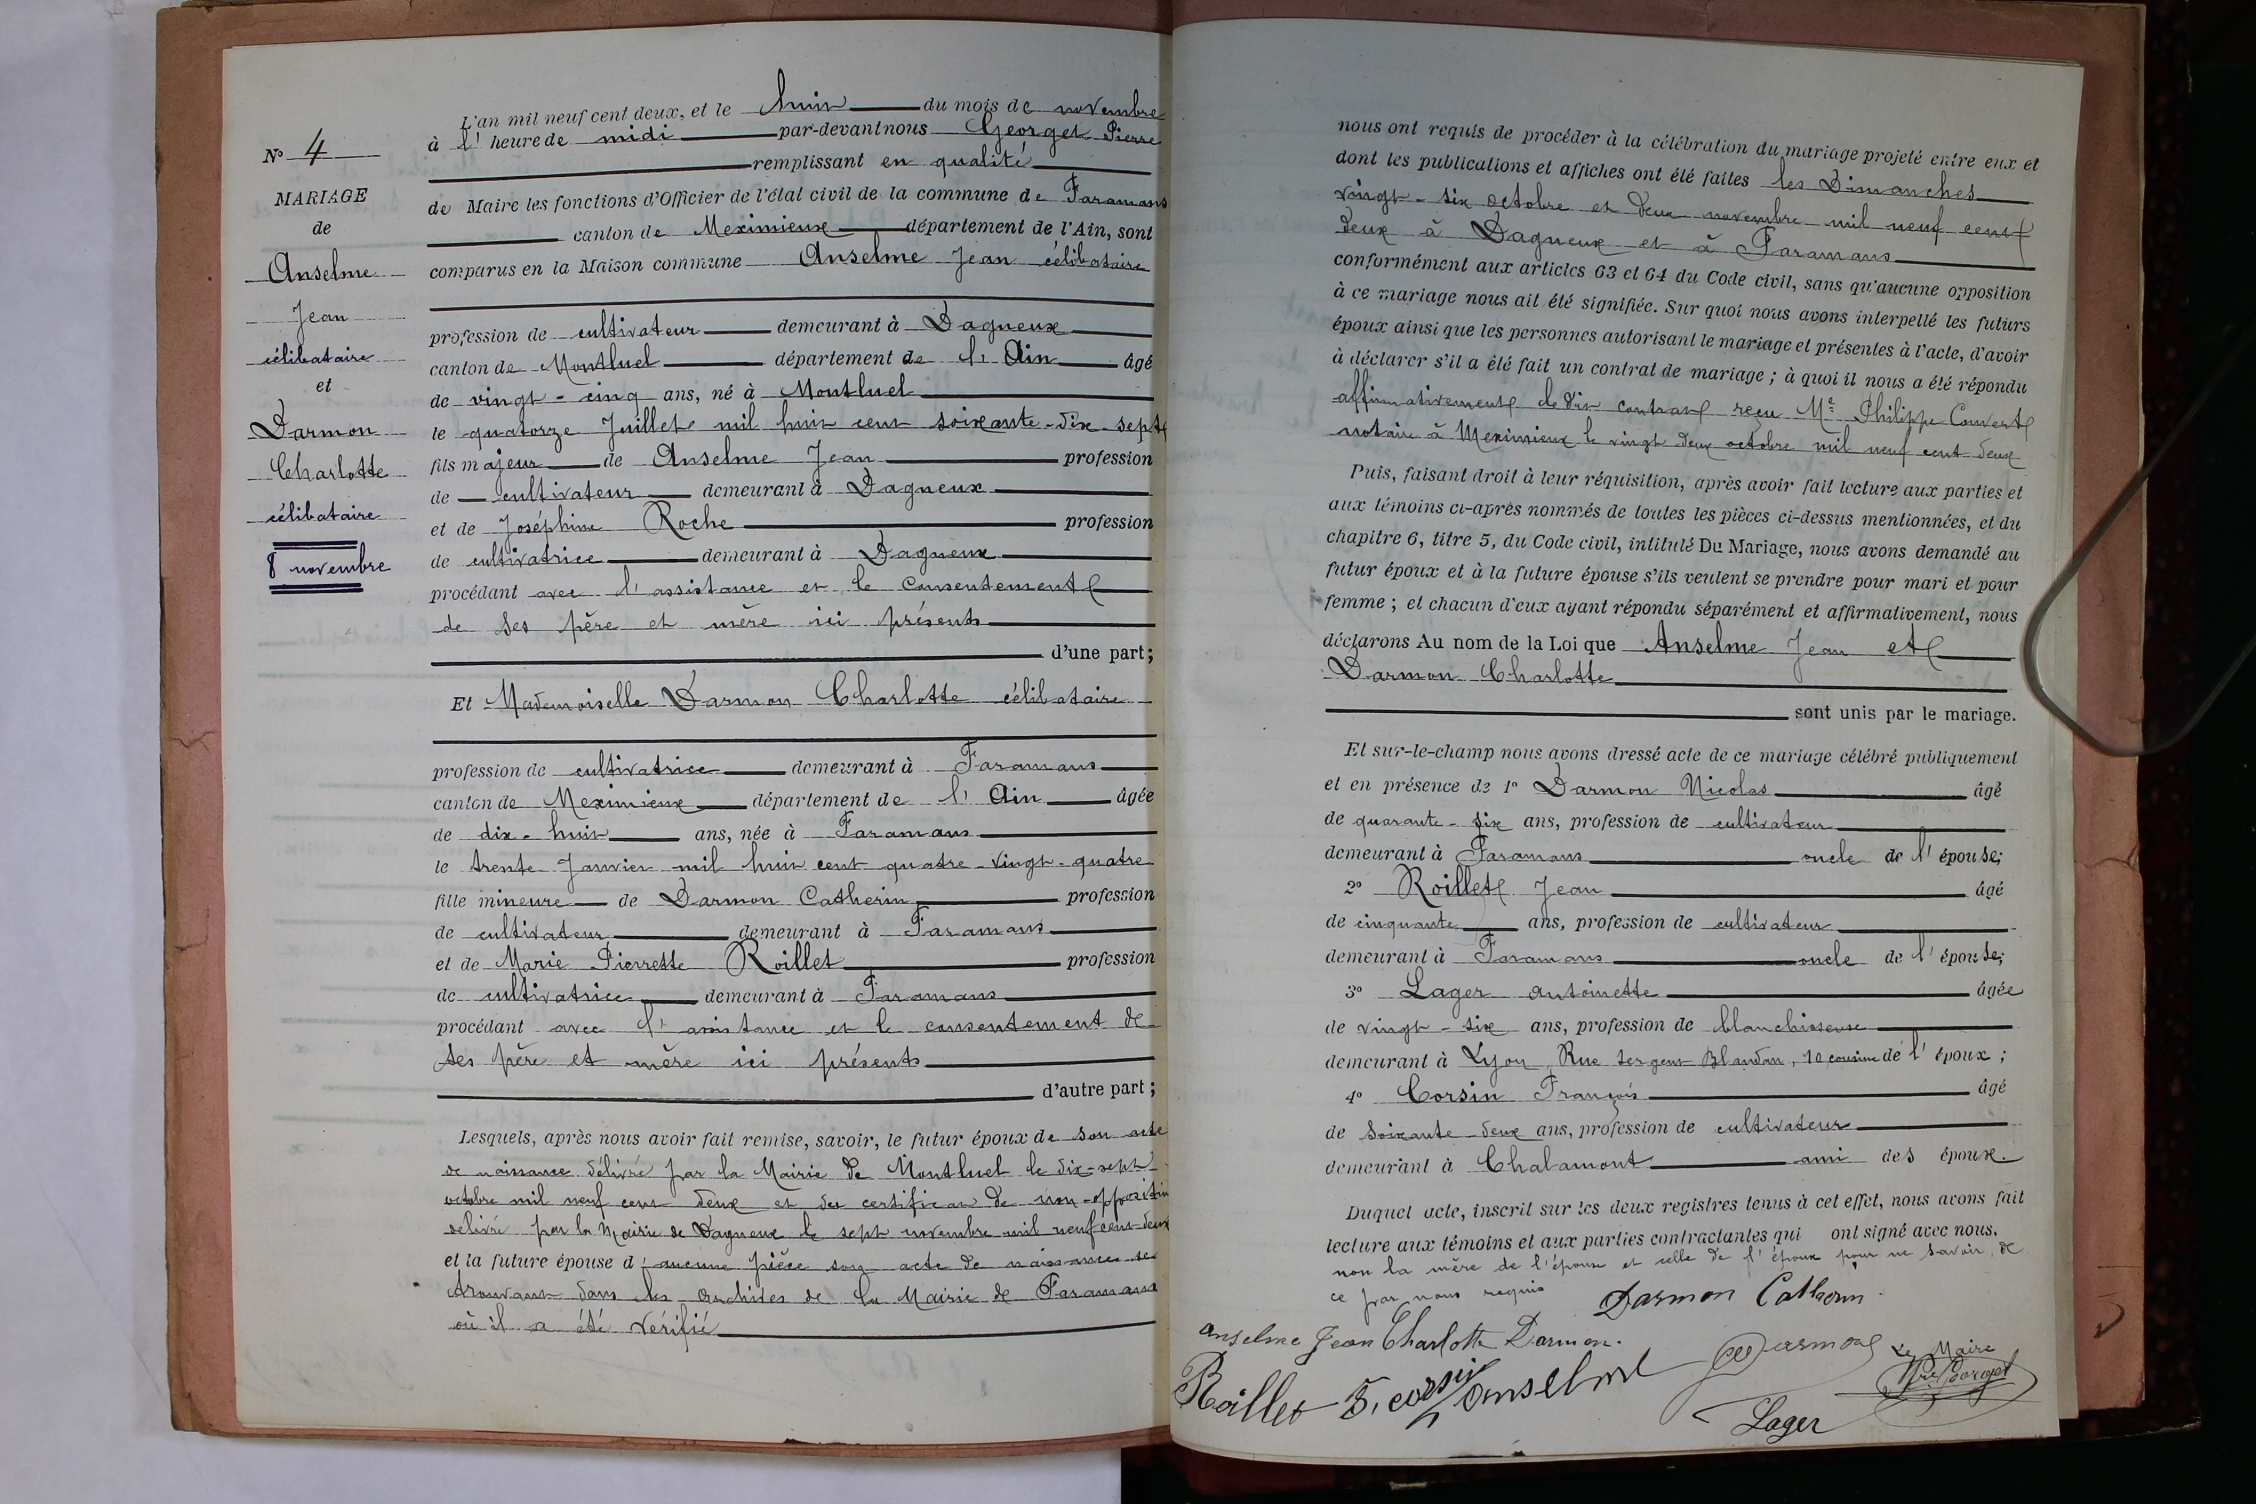 N° 4
MARIAGE
de
Anselme
Jean
célibataire
et
Darmon
Charlotte
célibataire
8 novembre
L'an mil neuf cent deux, et le huit du mois de novembre
à l'heure de midi par-devant nous Georget Pierre
remplissant en qualité
de Maire les fonctions d'Officier de l'état civil de la commune de Faramans
canton de Meximieux département de l'Ain, sont
comparus en la Maison commune Anselme Jean célibataire
profession de cultivateur demeurant à Dagneux
canton de Montluel département de l'Ain âgé
de vingt-cinq ans, né à Montluel
le quatorze Juillet mil huit cent soixante-dix-sept
fils majeur de Anselme Jean profession
de cultivateur demeurant à Dagneux
et de Joséphine Roche profession
de cultivatrice demeurant à Dagneux
procédant avec l'assistance et le consentement
de ses père et mère ici présents
d'une part;
Et Mademoiselle Darmon Charlotte célibataire
profession de cultivatrice demeurant à Faramans
canton de Meximieux département de l'Ain âgée
de dix-huit ans, née à Faramans
le trente Janvier mil huit cent quatre-vingt-quatre
fille mineure de Darmon Catherin profession
de cultivateur demeurant à Faramans
et de Marie Pierrette Roillet profession
de cultivatrice demeurant à Faramans
procédant avec l'assistance et le consentement de
ses père et mère ici présents
d'autre part;
Lesquels, après nous avoir fait remise, savoir, le futur époux de son acte
de naissance délivré par la Mairie de Montluel le dix-sept
octobre mil neuf cent deux et du certificat de non-opposition
délivré par la Mairie de Dagneux le sept novembre mil neuf cent deux
et la future épouse d'aucune pièce son acte de naissance se
trouvant dans les archives de la Mairie de Faramans
où il a été vérifié
nous ont requis de procéder à la célébration du mariage projeté entre eux et
dont les publications et affiches ont été faites les Dimanches
vingt-six octobre et deux novembre mil neuf cent
deux à Dagneux et à Faramans
conformément aux articles 63 et 64 du Code civil, sans qu'aucune opposition
à ce mariage nous ait été signifiée. Sur quoi nous avons interpellé les futurs
époux ainsi que les personnes autorisant le mariage et présentes à l'acte, d'avoir
à déclarer s'il a été fait un contrat de mariage; à quoi il nous a été répondu
affirmativement le dit contrat reçu Me Philippe Convert
notaire à Meximieux le vingt deux octobre mil neuf cent deux
Puis, faisant droit à leur réquisition, après avoir fait lecture aux parties et
aux témoins ci-après nommés de toutes les pièces ci-dessus mentionnées, et du
chapitre 6, titre 5, du Code civil, intitulé Du Mariage, nous avons demandé au
futur époux et à la future épouse s'ils veulent se prendre pour mari et pour
femme; et chacun d'eux ayant répondu séparément et affirmativement, nous
déclarons Au nom de la Loi que Anselme Jean et
Darmon Charlotte
sont unis par le mariage.
Et sur-le-champ nous avons dressé acte de ce mariage célébré publiquement
et en présence de 1° Darmon Nicolas âgé
de quarante-six ans, profession de cultivateur
demeurant à Faramans oncle de l'épouse;
2° Roillet Jean âgé
de cinquante ans, profession de cultivateur
demeurant à Faramans oncle de l'épouse;
3° Lager Antoinette âgée
de vingt-six ans, profession de blanchisseuse
demeurant à Lyon Rue Sergent Blandan, 10 cousine de l'époux;
4° Corsin François âgé
de soixante-deux ans, profession de cultivateur
demeurant à Chalamont ami des époux.
Duquel acte, inscrit sur les deux registres tenus à cet effet, nous avons fait
lecture aux témoins et aux parties contractantes qui ont signé avec nous.
non la mère de l'épouse et celle de l'époux pour ne savoir, de
ce par nous requis
Darmon Catherin
Anselme Jean Charlotte Darmon.
Darmon
Le Maire
Pre Georget
Roillet F. Corsin Anselme
Lager